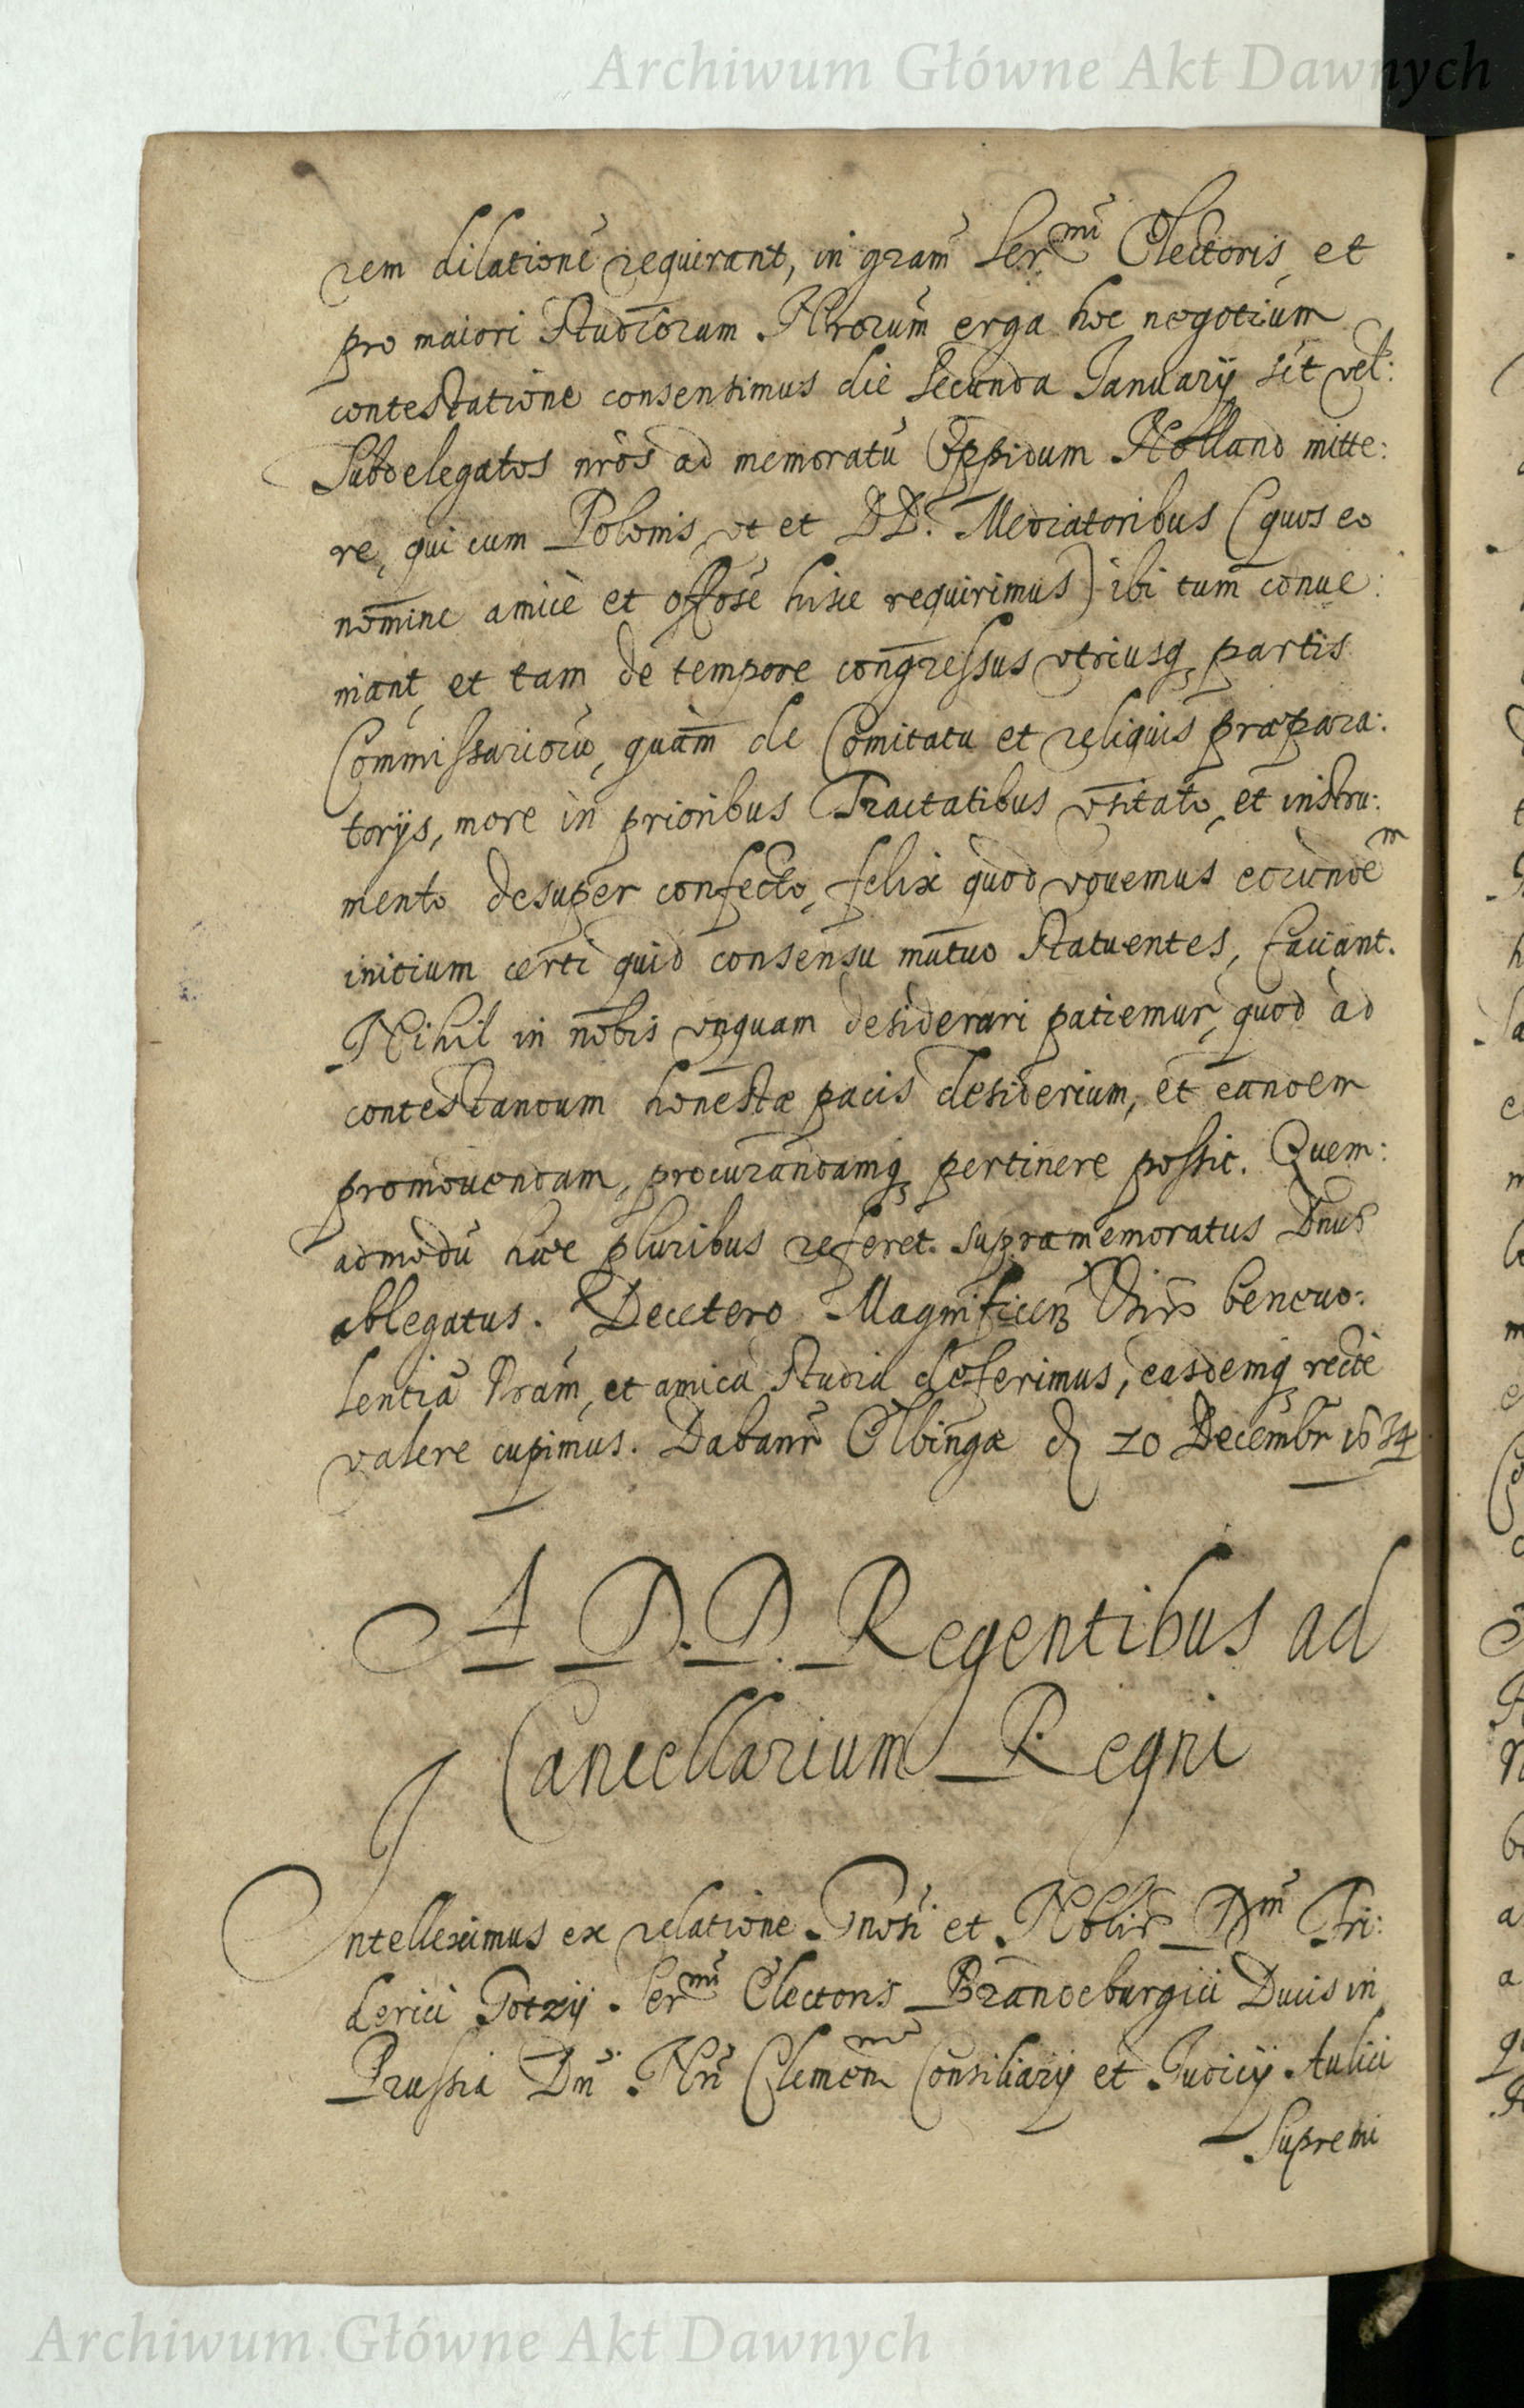 Archiwum Główne Akt Dawnych
rem dilationẽ requirant, in gr̃am Ser:mi Electoris, et
pro maiori Studiorum Nrorum erga hoc negotium
contestatione consensimus die secunda Januarij s̃t vet:
Subdelegatos nrõs ad memoratũ Oppidum Holland mitte:
re, qui cum Polonis, vt et DD. Mediatoribus (quos eo
nomine amicè et offõsẽ hisce requirimus) ibi tum conue:
niant, et tam de tempore congressus vtriusq, partis
Commissariorũ, quàm de Comitatu et reliquis præpara:
torijs, more in prioribus Tractatibus vsitato, et instru:
mento desuper confecto, felix quod vouemus eorundem
initium certi quid consensu mutuo Statuentes, faciant.
Nihil in nobis vnquam desiderari patiemur, quod ad
contestandum honestæ pacis desiderium, et eandem
promouendam, procurandamq, pertinere possit. Quem:
admodũ hæc pluribus referet supramemoratus Dnus
ablegatus. De cetero Magnificen̄ Vris beneuo:
lentiã Nr̃am, et amica Studia deferimus, easdemq, rectè
valere cupimus. Dabantr Elbingæ d. 20 Decembr 1634
A D.D. Regentibus ad
Cancellarium Regni
Intelleximus ex relatione Gnosi et Nobiliss Dni Fri:
derici Gotzij Sermi Electoris Brandeburgici Ducis in
Prussia Dn̄i Nr̄i Clemenmi Consiliarij et Judicij Aulici
Supremi
Archiwum Główne Akt Dawnych